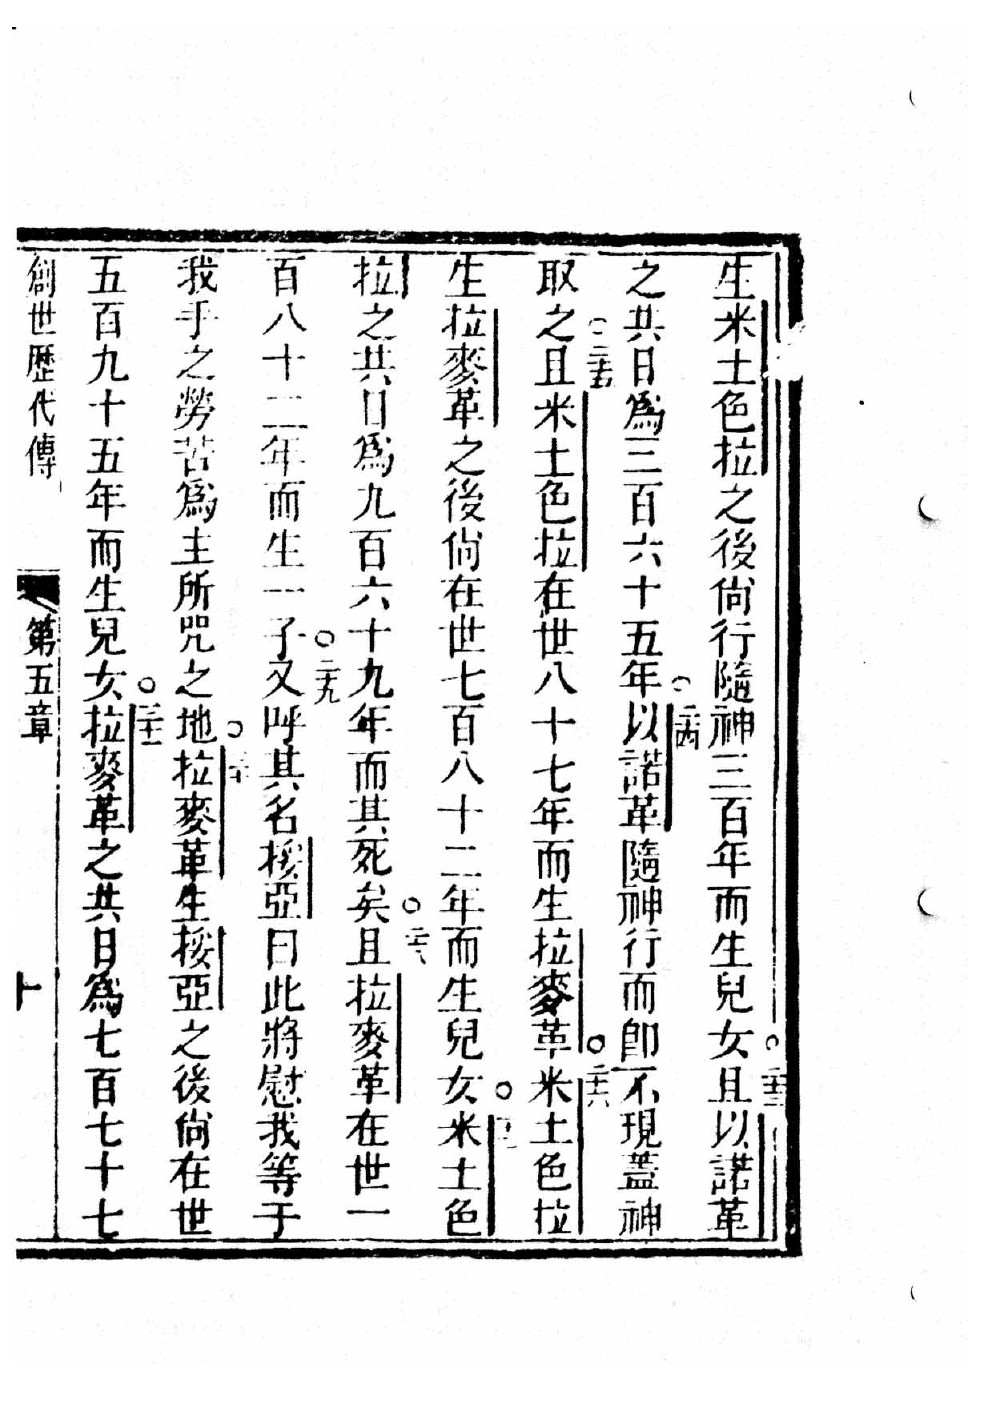 生米土色拉之後尙行隨神三百年而生兒女○二十三且以諾革
之共日爲三百六十五年○二十四以諾革隨神行而卽不現蓋神
取之○二十五且米土色拉在世八十七年而生拉麥革○二十六米土色拉
生拉麥革之後尙在世七百八十二年而生兒女○米土色
拉之共日爲九百六十九年而其死矣○二十八且拉麥革在世一
百八十二年而生一子○二十九又呼其名挼亞曰此將慰我等于
我手之勞苦爲主所咒之地○三十拉麥革生挼亞之後尙在世
五百九十五年而生兒女○三十一拉麥革之共日爲七百七十七
創世歷代傳 第五章 十